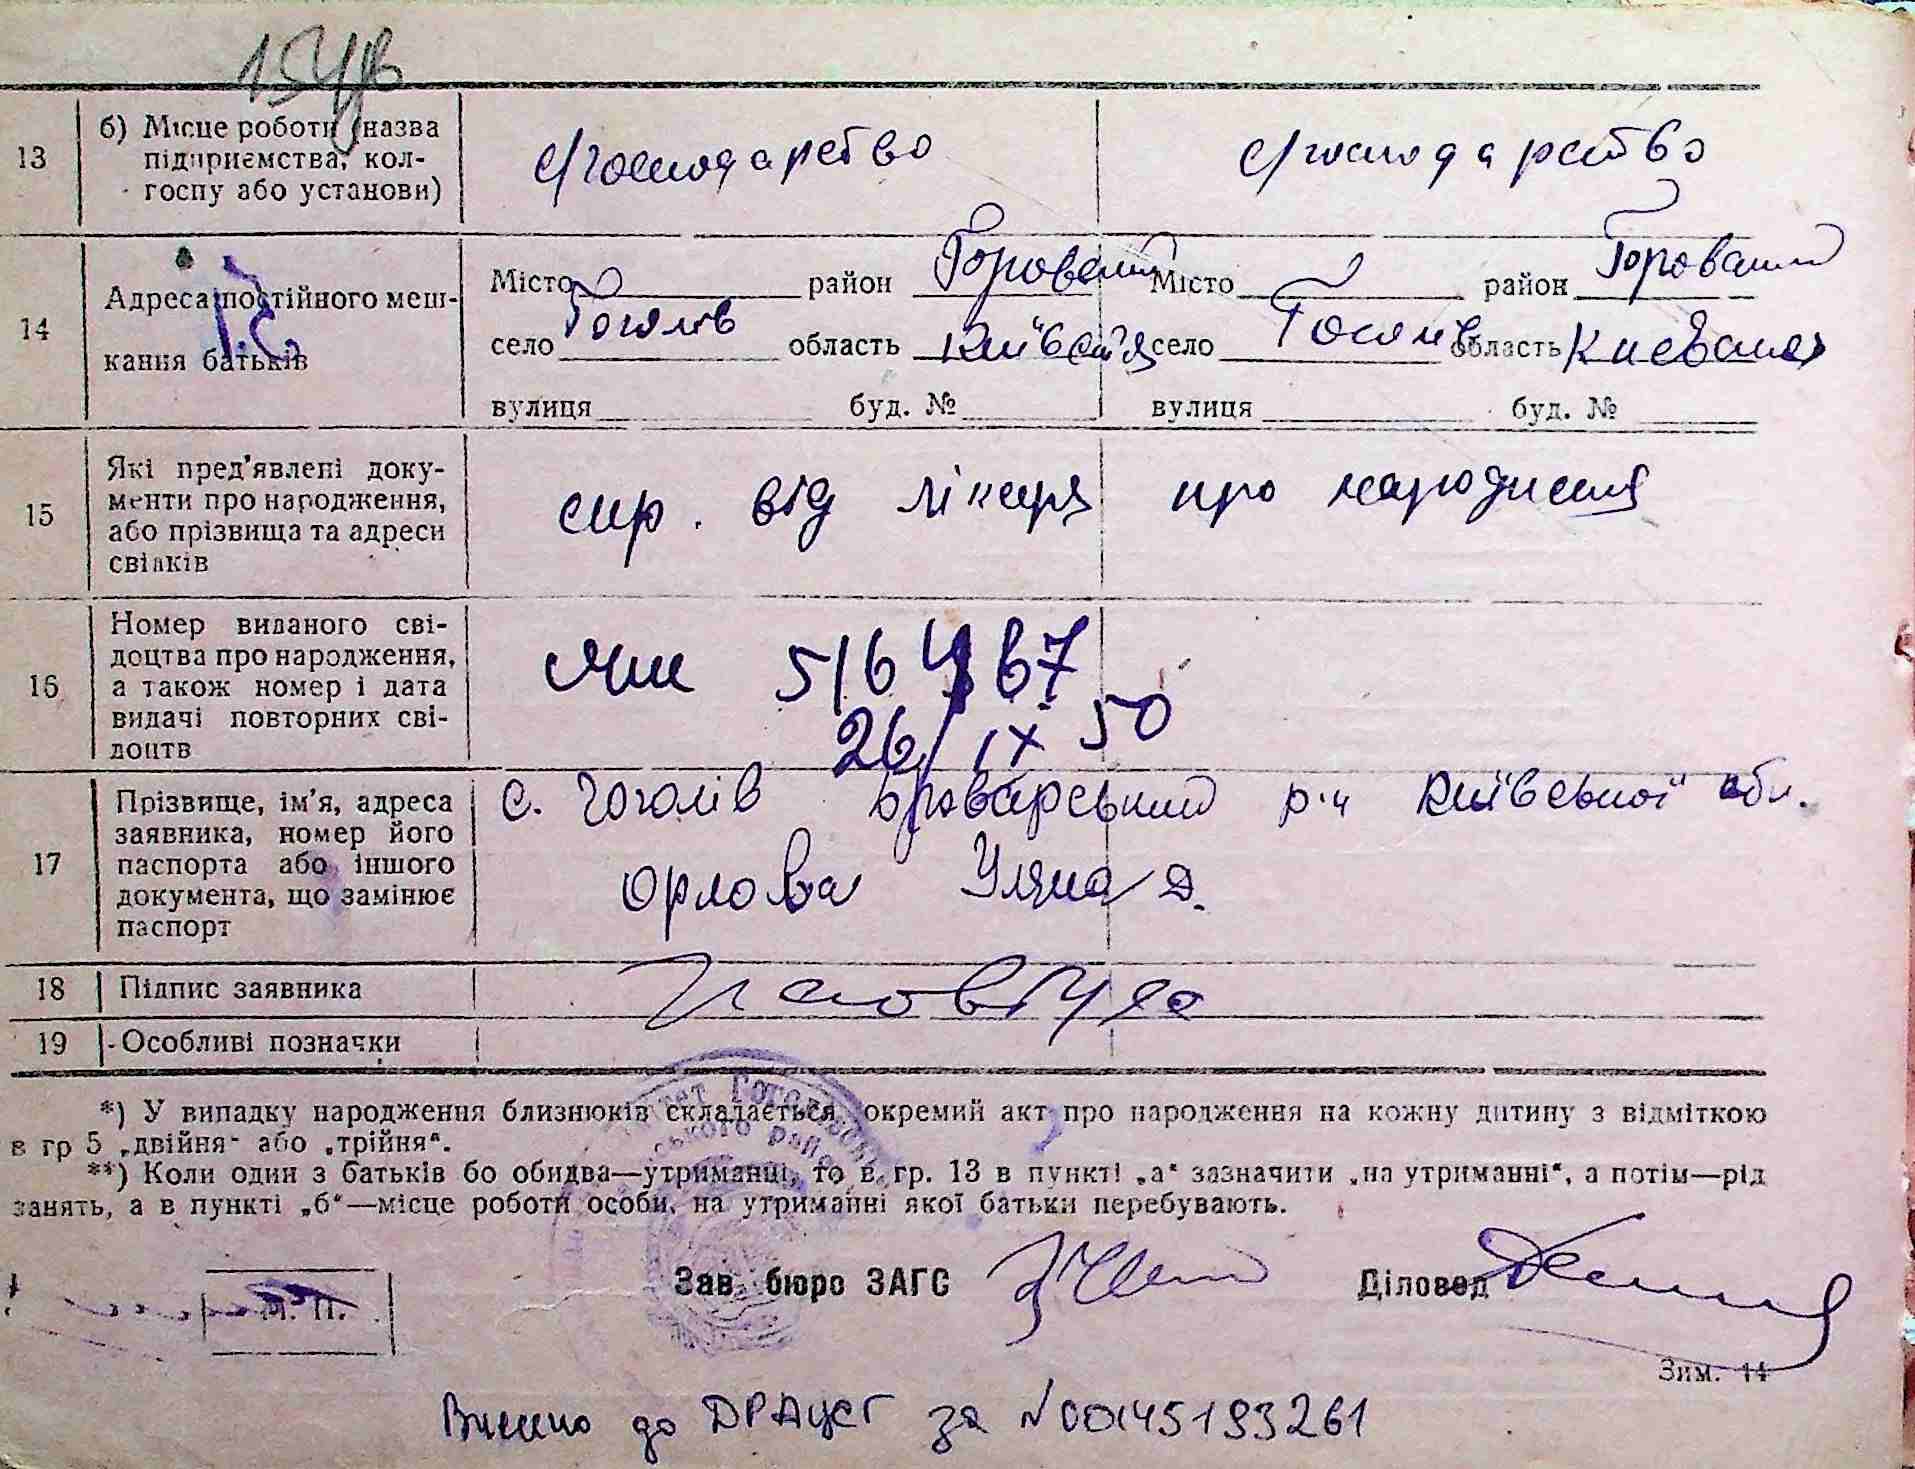 13 б) Місце роботи (назва с/господарство с/господарство
підприємства, кол-
госпу або установи)
14 Адреса постійного меш-
кання батьків
Місто район Броварський Місто район
село Гоголів область Київська село Гоголів область Киевская
вулиця буд. № вулиця буд. №
15 Які пред'явлені доку-
менти про народження,
або прізвища та адреси
свідків
спр. від лікаря про народження
16 Номер виданого сві-
доцтва про народження,
а також номер і дата
видачі повторних сві-
доцтв
26/IX 50
17 Прізвище, ім'я, адреса
заявника, номер його
паспорта або іншого
документа, що замінює
паспорт
с. Гоголів Броварський р-н Київської обл.
Орлова Уляна Д.
18 Підпис заявника
19 Особливі позначки
*) У випадку народження близнюків складається окремий акт про народження на кожну дитину з відміткою
в гр 5 „двійня" або „трійня".
**) Коли один з батьків бо обидва—утриманці, то в гр. 13 в пункті „а" зазначити „на утриманні", а потім—рід
занять, а в пункті „б"—місце роботи особи, на утриманні якої батьки перебувають.
Зав. бюро ЗАГС Діловод
М. П.
Зим. 14
Внесено до ДРАЦСГ за №00145193261